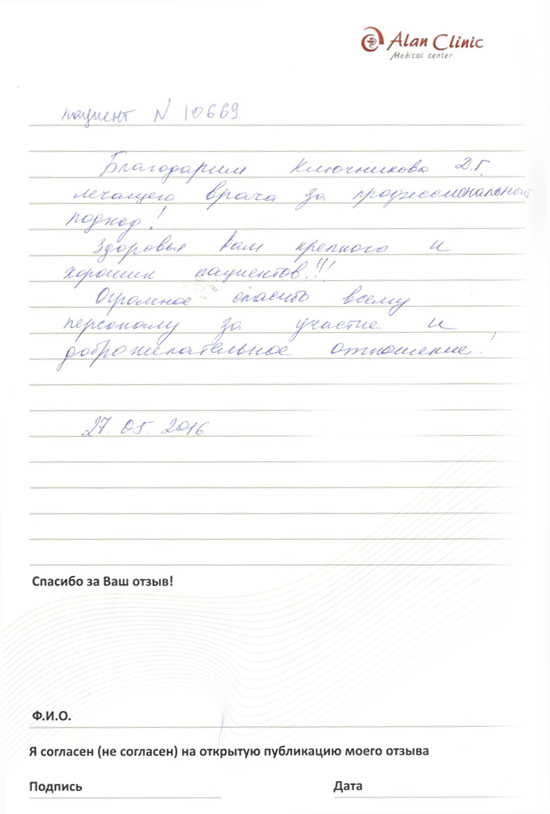 Alan Clinic
Medical center
пациент N 10669
Благодарим Ключникова Д.Г.
лечащего врача за профессиональный
подход!
Здоровья Вам крепкого и
хороших пациентов!!!
Огромное спасибо всему
персоналу за участие и
доброжелательное отношение!
27.05.2016
Спасибо за Ваш отзыв!
Ф.И.О.
Я согласен (не согласен) на открытую публикацию моего отзыва
Подпись Дата